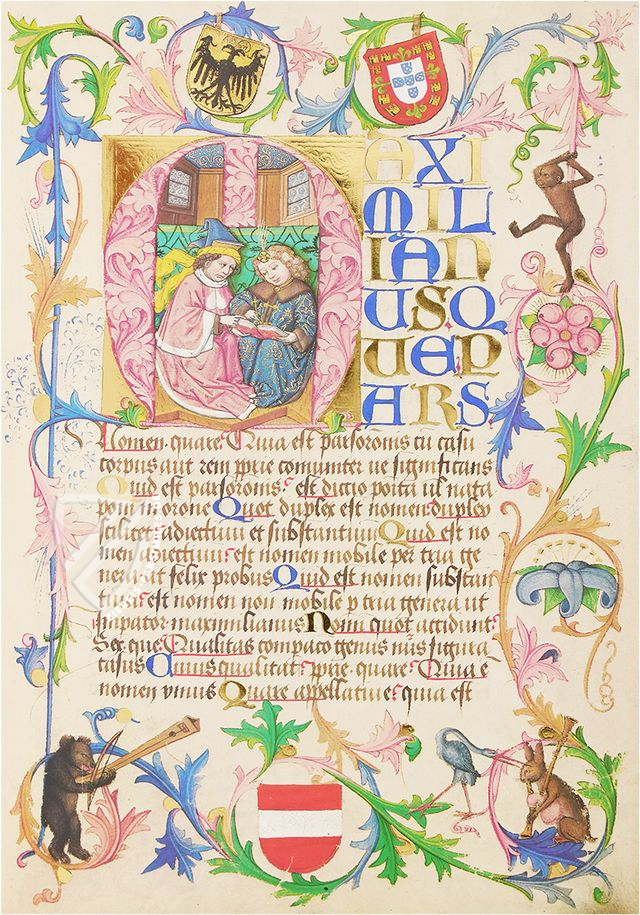 MAXI
MIL
IAN
USQ
UE.P
ARS
Nomen. quare. Quia est pars oronis cū casu
corpus aut rem prie comuniter ue significans
Quid est pars oronis. est dictio posita ul nata
poni in orone Quot duplex est nomen. duplex
scilicet adiectum et substantiuū Quid est no
men adiectiuū. est nomen mobile per tria ge
nera ut felix probus Quid est nomen substan
tiuū. est nomen non mobile p tria genera ut
inpator maximilianus Noīn quot accidunt.
Sex. que. Qualitas compaco genus nūs figura
casus Cuius qualitat. prie. quare. Quia ē
nomen vnius Quare appellatiue. quia est